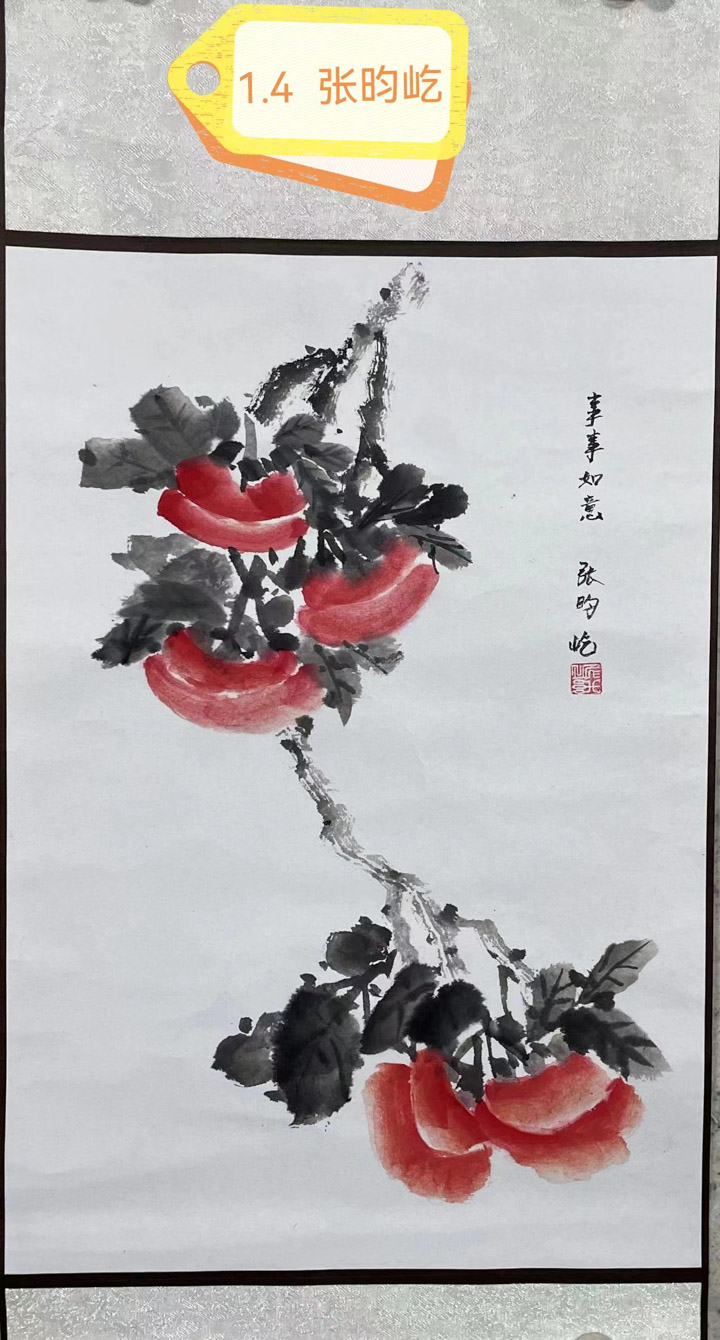 1.4 张昀屹
事事如意
张昀屹